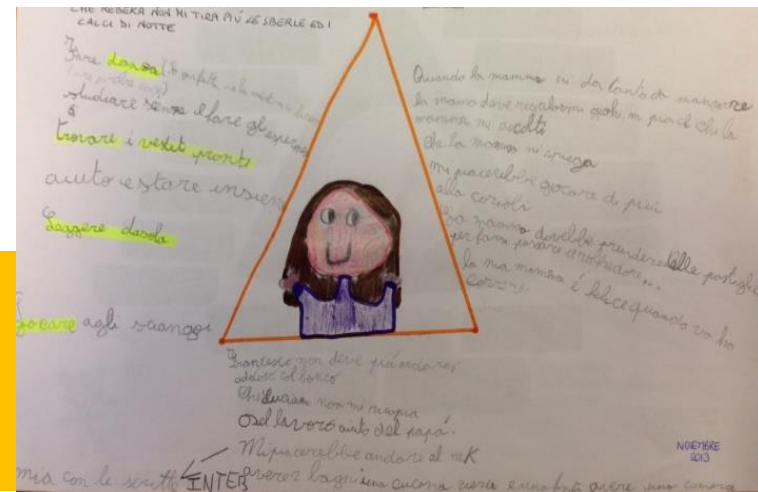 CHE REBERA NON MI TIRA PIÚ LE SBERLE ED I
CALCI DI NOTTE
Fare dasola
studiare senza il fare gli
trovare i vestiti pronti
aiuto e stare insiem
Leggere dasola
giocare agli sciangai
Quando la mamma mi da tanto da mangiare
la mamma deve regalarmi giochi mi piace che la
mamma mi ascolti
che la mamma mi spiega
mi piacerebbe giocare di più
alla
La mamma dovrebbe prendere delle pastiglie
per farsi passare il raffredore...
la mia mamma é felice quando va ha
correre.
Francesco non deve più andarmi
addosso col banco
Che non mi
Del lavoro aiuto del papá.
Mi piacerebbe andare al mK
INTER avere una cucina vera e una avere una camera
mia con le scritte
NOVEMBRE
2013